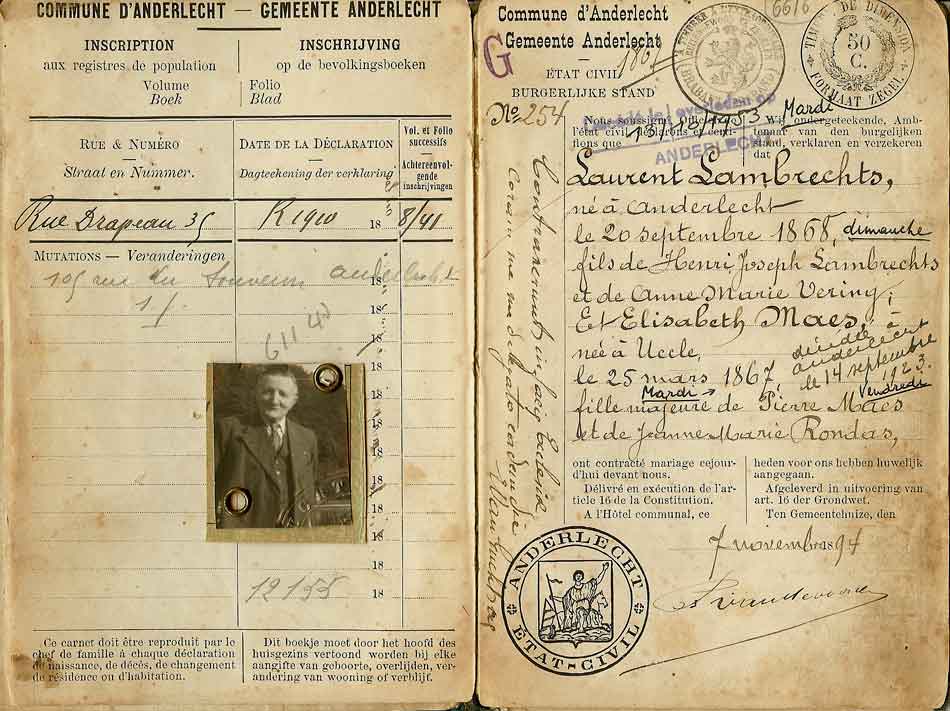 COMMUNE D'ANDERLECHT — GEMEENTE ANDERLECHT
INSCRIPTION
aux registres de population
Volume
Boek
INSCHRIJVING
op de bevolkingsboeken
Folio
Blad
RUE & NUMÉRO
Straat en Nummer.
DATE DE LA DÉCLARATION
Dagteekening der verklaring
Vol. et Folio
successifs
Achtereenvol-
gende
inschrijvingen
Rue Drapeau 35
R 1910 18 8/41
MUTATIONS — Veranderingen
105 rue du Souvenir anderlecht 18
18
18
611 40
18
18
18
18
18
18
18
18
18
12155 18
Ce carnet doit être reproduit par le
chef de famille à chaque déclaration
de naissance, de décès, de changement
de résidence ou d'habitation.
Dit boekje moet door het hoofd des
huisgezins vertoond worden bij elke
aangifte van geboorte, overlijden, ver-
andering van wooning of verblijf.
Commune d'Anderlecht
Gemeente Anderlecht
G
ÉTAT CIVIL
BURGERLIJKE STAND
No 254
TIMBRE DE DIMENSION
50
C.
FORMAAT ZEGEL
overleden op
1953 Mardi
ANDERLECHT
Nous soussigné Officier de
l'état civil, déclarons et certi-
fions que
Wij ondergeteekende, Amb-
tenaar van den burgelijken
stand, verklaren en verzekeren
dat
Laurent Lambrechts,
né à Anderlecht
le 20 septembre 1868, dimanche
fils de Henri Joseph Lambrechts
et de Anne Marie Vering;
Et Elisabeth Maes,
née à Uccle,
le 25 mars 1867,
Mardi
décédée à
anderlecht
le 14 septembre
1923.
Vendredi
fille majeure de Pierre Maes
et de Jeanne Marie Rondas,
ont contracté mariage cejour-
d'hui devant nous.
Délivré en exécution de l'ar-
ticle 16 de la Constitution.
A l'Hôtel communal, ce
heden voor ons hebben huwelijk
aangegaan.
Afgeleverd in uitvoering van
art. 16 der Grondwet.
Ten Gemeentehuize, den
7 novembre 1894
ANDERLECHT
ETAT-CIVIL